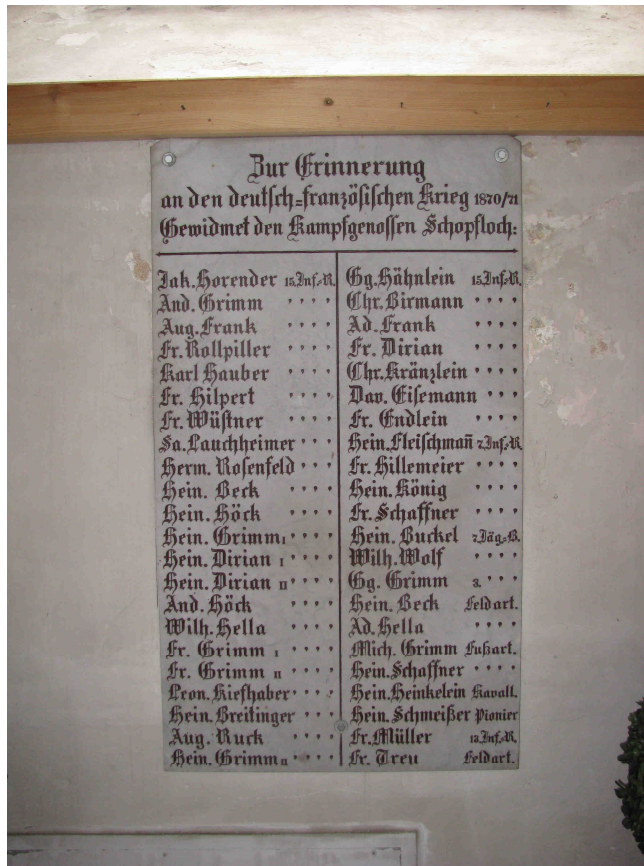 Zur Erinnerung
an den deutsch=französischen Krieg 1870/71
Gewidmet den Kampfgenossen Schopfloch:
Jak. Horender 15. Inf.-R.
And. Grimm " " " "
Aug. Frank " " " "
Fr. Rollpiller " " " "
Karl Hauber " " " "
Fr. Hilpert " " " "
Fr. Wüstner " " " "
Sa. Lauchheimer " " "
Herm. Rosenfeld " " "
Hein. Beck " " " "
Hein. Höck " " " "
Hein. Grimm I " " " "
Hein. Dirian I " " " "
Hein. Dirian II " " " "
And. Höck " " " "
Wilh. Hella " " " "
Fr. Grimm I " " " "
Fr. Grimm II " " " "
Leon. Kiefhaber " " "
Hein. Breitinger " " "
Aug. Ruck " " " "
Hein. Grimm II " " " "
Gg. Hähnlein 15. Inf.-R.
Chr. Birmann " " " "
Ad. Frank " " " "
Fr. Dirian " " " "
Chr. Kränzlein " " " "
Dav. Eisemann " " "
Fr. Endlein " " "
Hein. Fleischmañ 7. Inf.-R.
Fr. Hillemeier " " " "
Hein. König " " " "
Fr. Schaffner " " " "
Hein. Buckel 7. Jäg.-B.
Wilh. Wolf " " " "
Gg. Grimm 3. " " "
Hein. Beck Feldart.
Ad. Hella " " " "
Mich. Grimm Fußart.
Hein. Schaffner " " " "
Hein. Heinkelein Kavall.
Hein. Schmeißer Pionier
Fr. Müller 12. Inf.-R.
Fr. Treu Feldart.